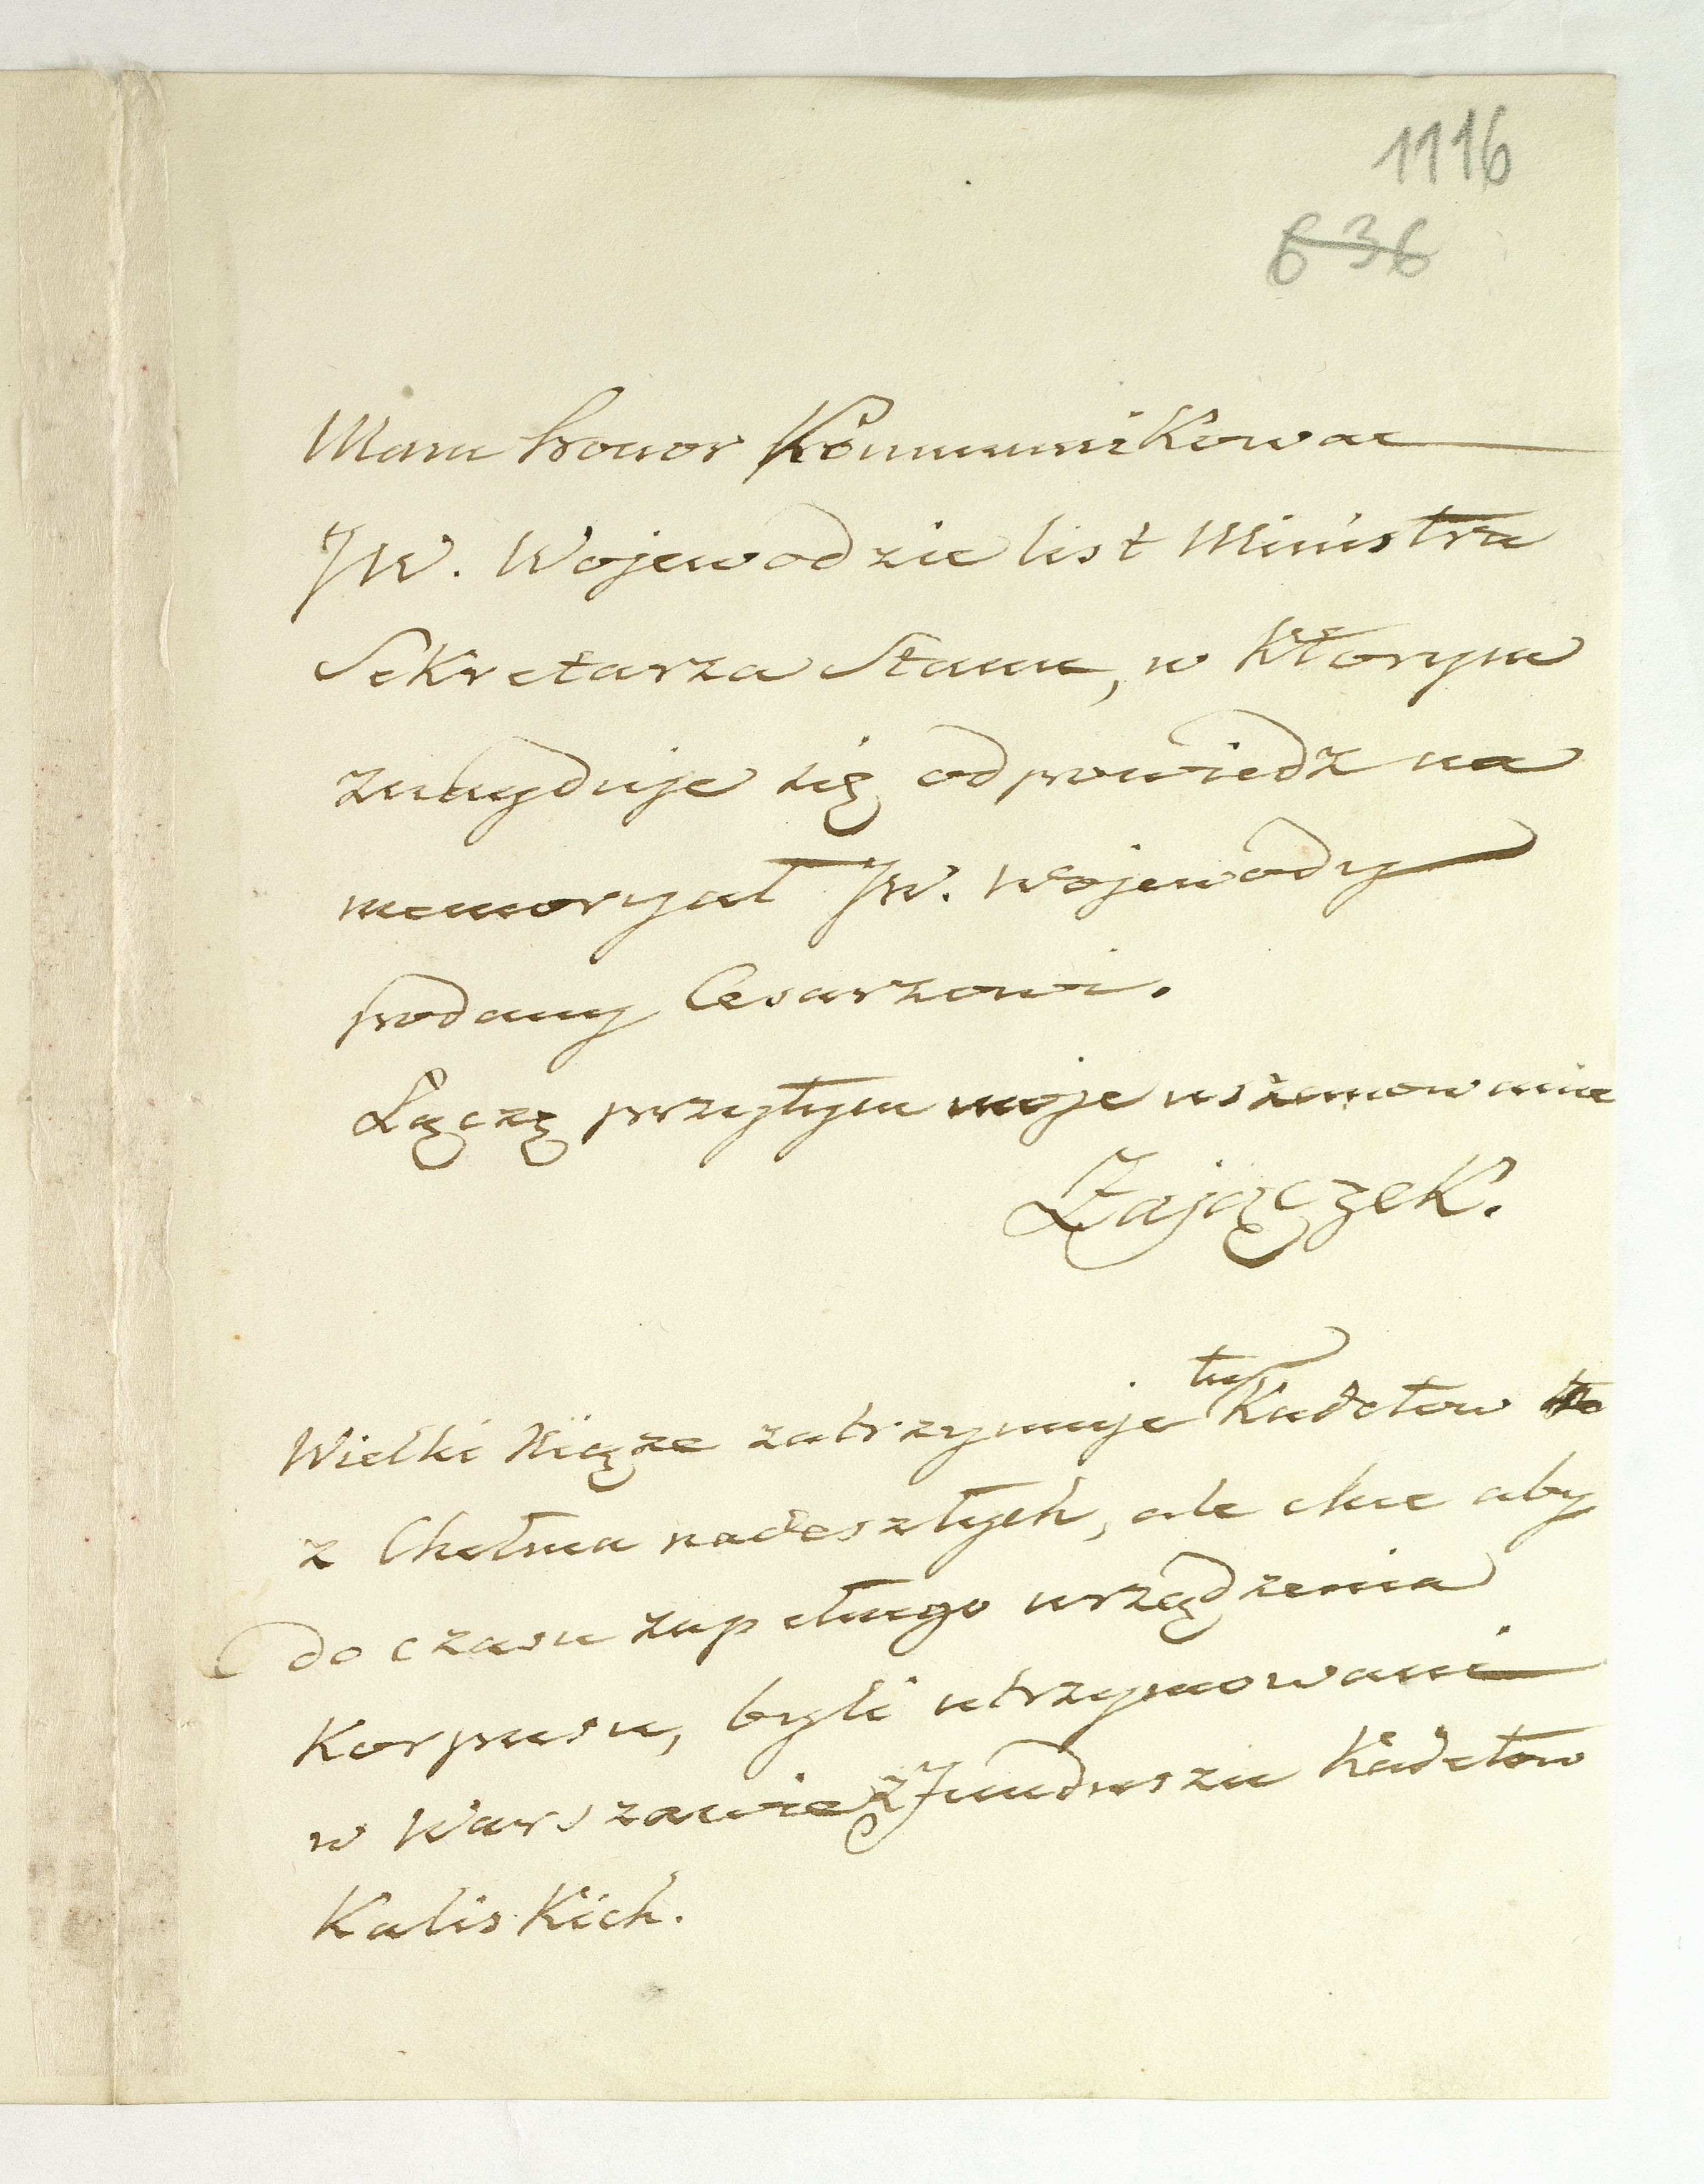 1116
636
Mam honor Kommunikowac
JW. Wojewodzie list Ministra
Sekretarza Stanu, w Ktorym
znayduje się odpowiedz na
memoryał JW. Wojewody
podany Cesarzowi.
Łączę przytym moje uszanowanie
Zajączek.
Wielki Xiąze zatrzymuje tu Kadetow
z Chełma nadeszłych, ale chce aby
do czasu zupełnego urządzenia
Korpusu, byli utrzymowani
w Warszawie z funduszu Kadetow
Kaliskich.